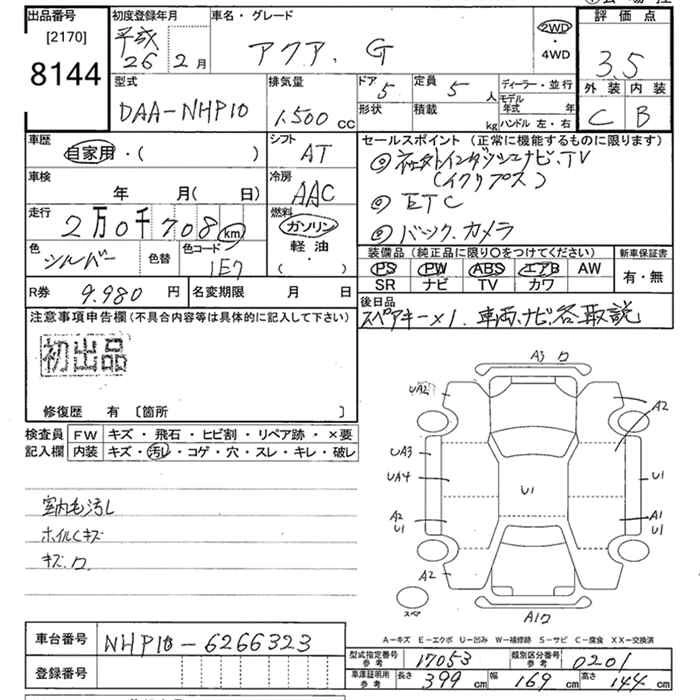 出品番号 初度登録年月 車名・グレード 評価点
[2170] 平成 2WD
8144 26 2月 アクア. G ・4WD 3.5
型式 排気量 ドア 5 定員 5 人 ディーラー・並行 外装 内装
DAA-NHP10 1.500 cc 形状 積載 kg モデル年式 年 C B
ハンドル 左・右
車歴 シフト セールスポイント (正常に機能するものに限ります)
自家用・( ) AT
車検 冷房 (イクリプス)
年 月( 日) AAC ETC
走行 燃料 バック.カメラ
2万0千708km ガソリン
色 色替 色コード 軽油 装備品 (純正品に限り○をつけてください) 新車保証書
シルバー 1E7 ・( ) PS PW ABS エアB AW 有・無
SR ナビ TV カワ
R券 9.980 円 名変期限 月 日 後日品
注意事項申告欄(不具合内容等は具体的に記入して下さい) スペアキー×1. 車両、ナビ各取説
初出品
修復歴 有 [箇所 ]
検査員 FW キズ・飛石・ヒビ割・リペア跡・×要
記入欄 内装 キズ・汚し・コゲ・穴・スレ・キレ・破レ
A3 ロ
UA2
A2
UA3
UA4
U1
U1
A2
U1
A1
U1
A2
スペア
A1ロ
室内毛汚し
ホイルCキズ
キズ.ロ
A-キズ E-エクボ U-凹み W-補修跡 S-サビ C-腐食 XX-交換済
車台番号 NHP10-6266323
型式指定番号 参考 17053 類別区分番号 参考 0201
登録番号
車庫証明用 参考 長さ 399 cm 幅 169 cm 高さ 144 cm